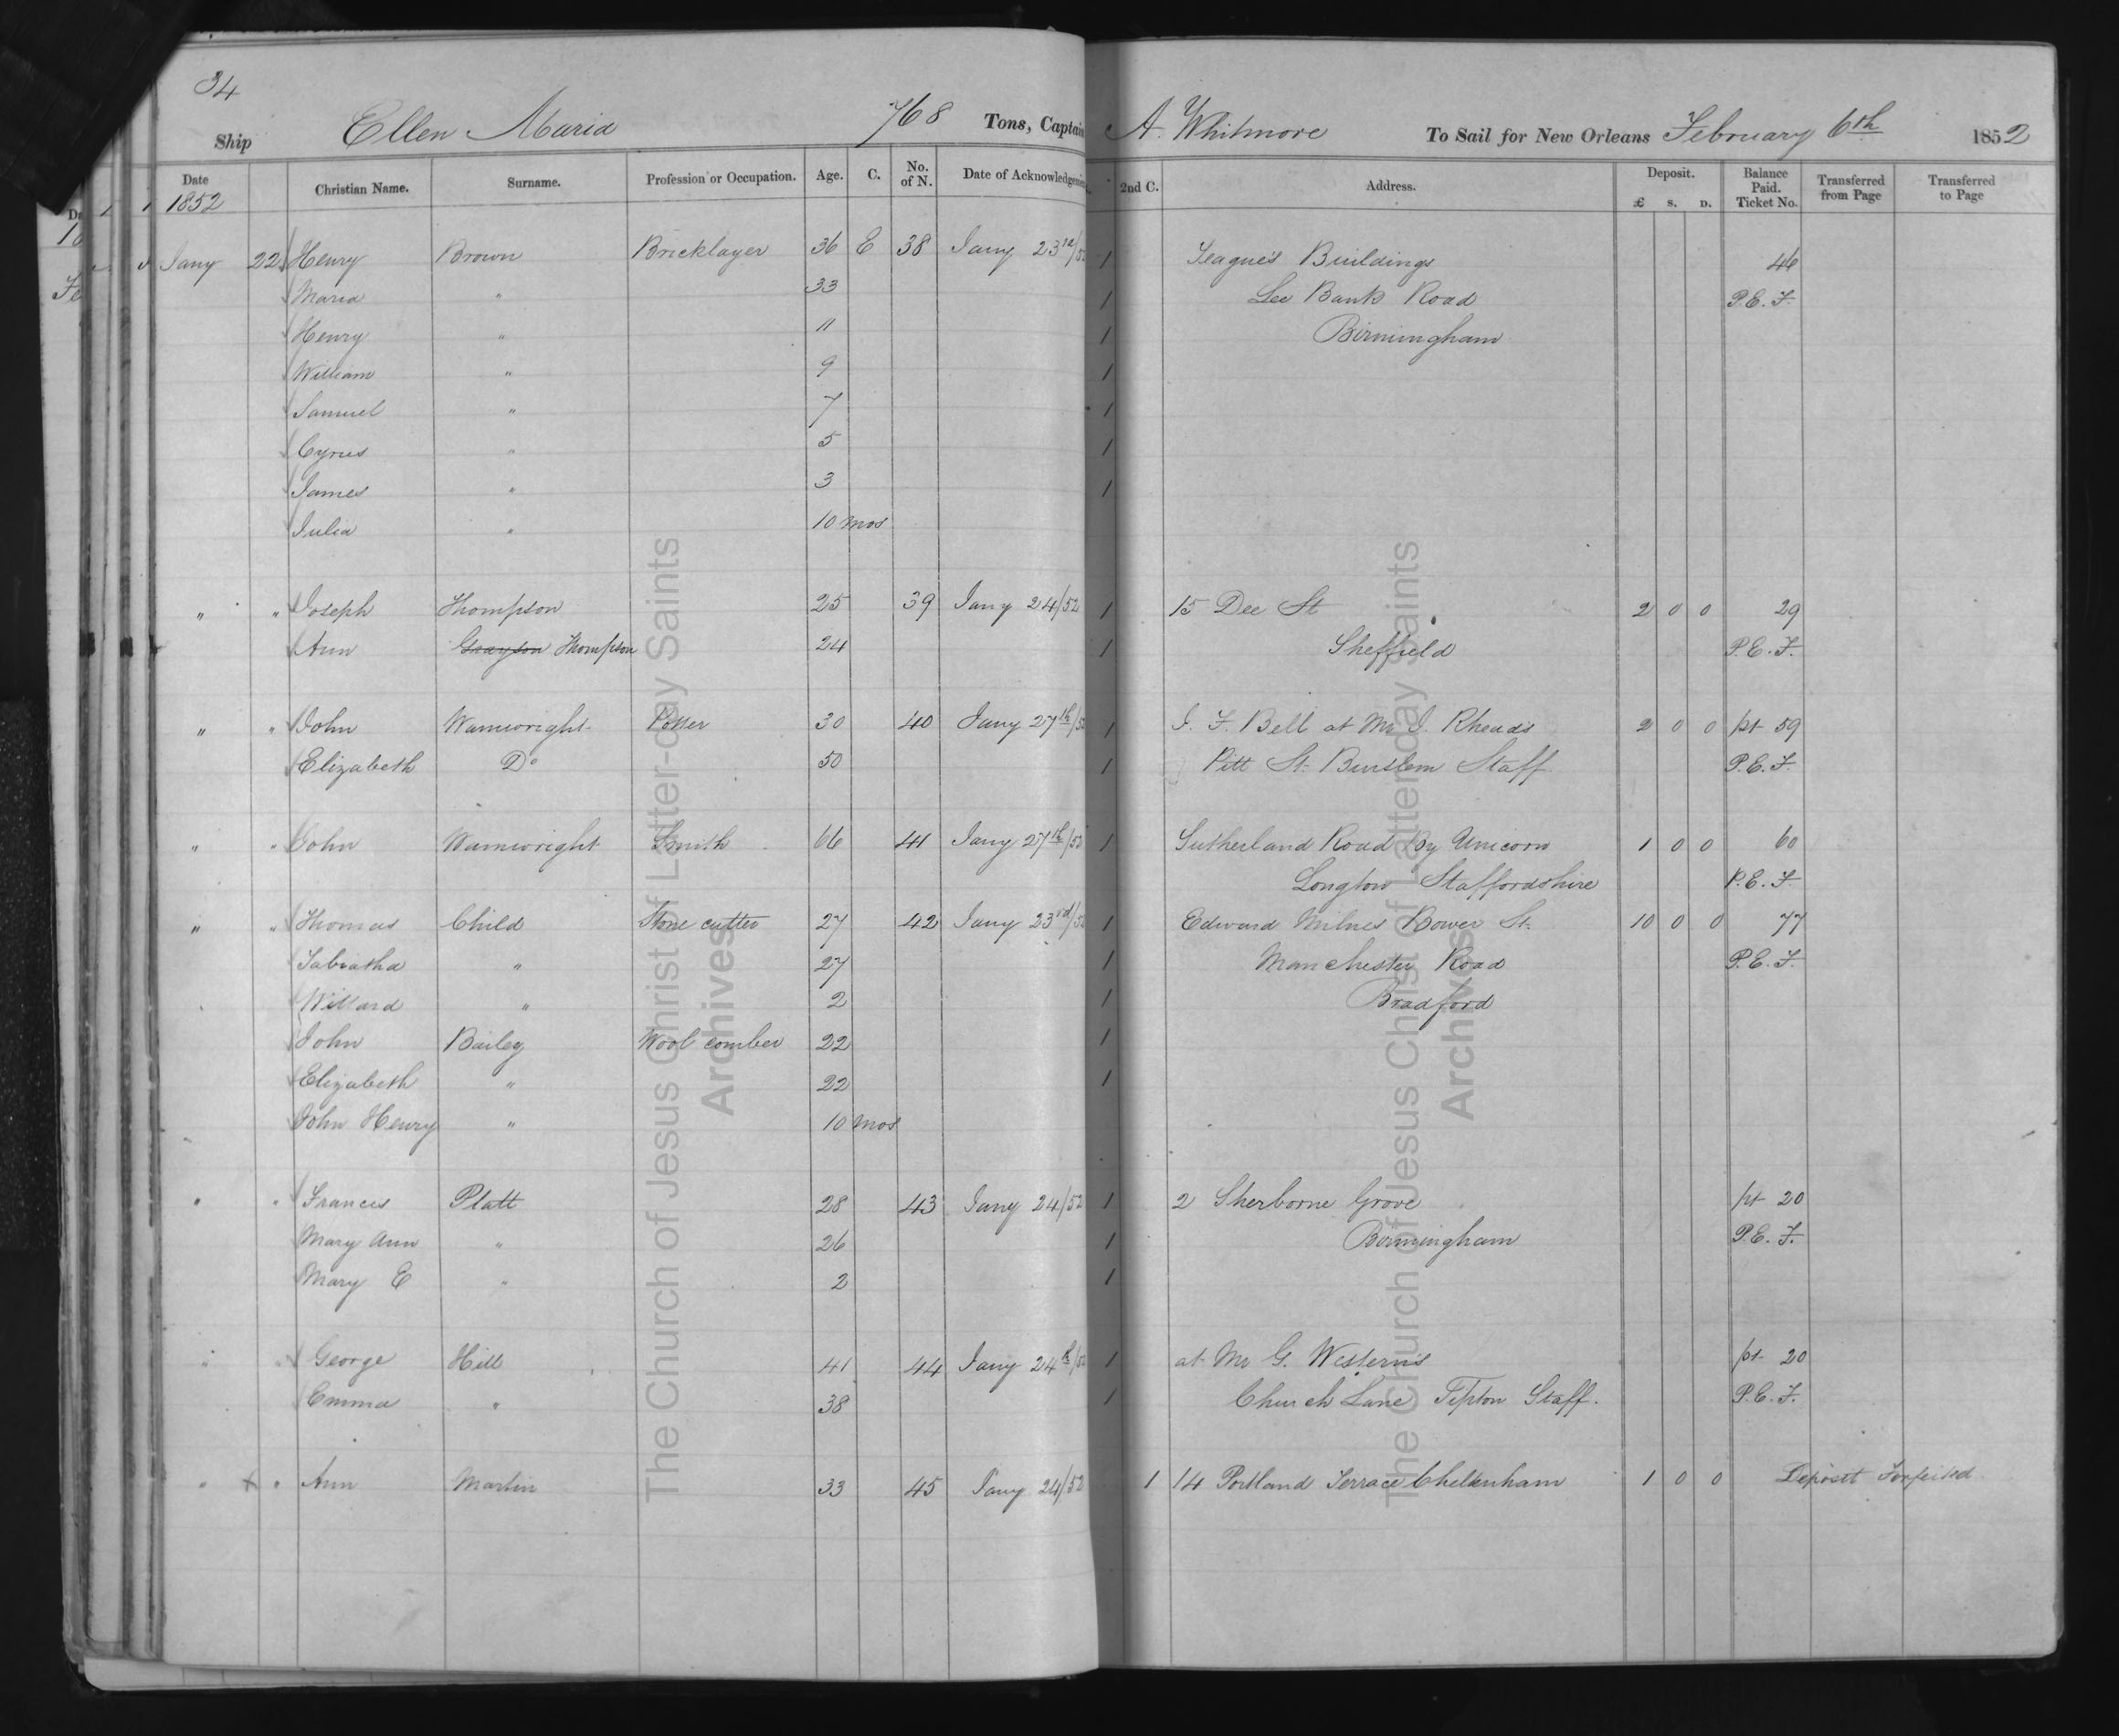 34
Ship Ellen Maria 768 Tons, Captain A. Whitmore To Sail for New Orleans February 6th 1852
Date Christian Name. Surname. Profession or Occupation. Age. C. No. of N. Date of Acknowledgement 2nd C. Address. Deposit. £ S. D. Balance Paid. Ticket No. Transferred from Page Transferred to Page
1852
Jany 22 Henry Brown Bricklayer 36 E 38 Jany 23rd/52 1 League's Buildings 46
Maria " 33 1 Lee Bank Road P.E.F.
Henry " 11 1 Birmingham
William " 9 1
Samuel " 7 1
Cyrus " 5 1
James " 3 1
Julia " 10 mos
" " Joseph Thompson 25 39 Jany 24/52 1 15 Dee St 2 0 0 29
Ann Grayson Thompson 24 1 Sheffield P.E.F.
" " John Wainwright Potter 30 40 Jany 27th/52 1 J. F. Bell at Mr J. Rhead's 2 0 0 pt 59
Elizabeth Do 50 1 Pitt St. Burslem Staff P.E.F.
" " John Wainwright Smith 66 41 Jany 27th/52 1 Sutherland Road By Unicorn 1 0 0 60
Longton Staffordshire P.E.F.
" " Thomas Child Stone cutter 27 42 Jany 23rd/52 1 Edward Milnes Bower St. 10 0 0 77
Tabiatha " 27 1 Manchester Road P.E.F.
Willard " 2 1 Bradford
John Bailey Wool comber 22 1
Elizabeth " 22 1
John Henry " 10 mos
" " Francis Platt 28 43 Jany 24/52 1 2 Sherborne Grove pt 20
Mary Ann " 26 1 Birmingham P.E.F.
Mary E " 2 1
" " George Hill 41 44 Jany 24th/52 1 at Mr G. Western's pt 20
Emma " 38 1 Church Lane Tipton Staff. P.E.F.
" x " Ann Martin 33 45 Jany 24/52 1 14 Portland Terrace Cheltenham 1 0 0 Deposit Forfeited
The Church of Jesus Christ of Latter-day Saints
Archives
The Church of Jesus Christ of Latter-day Saints
Archives